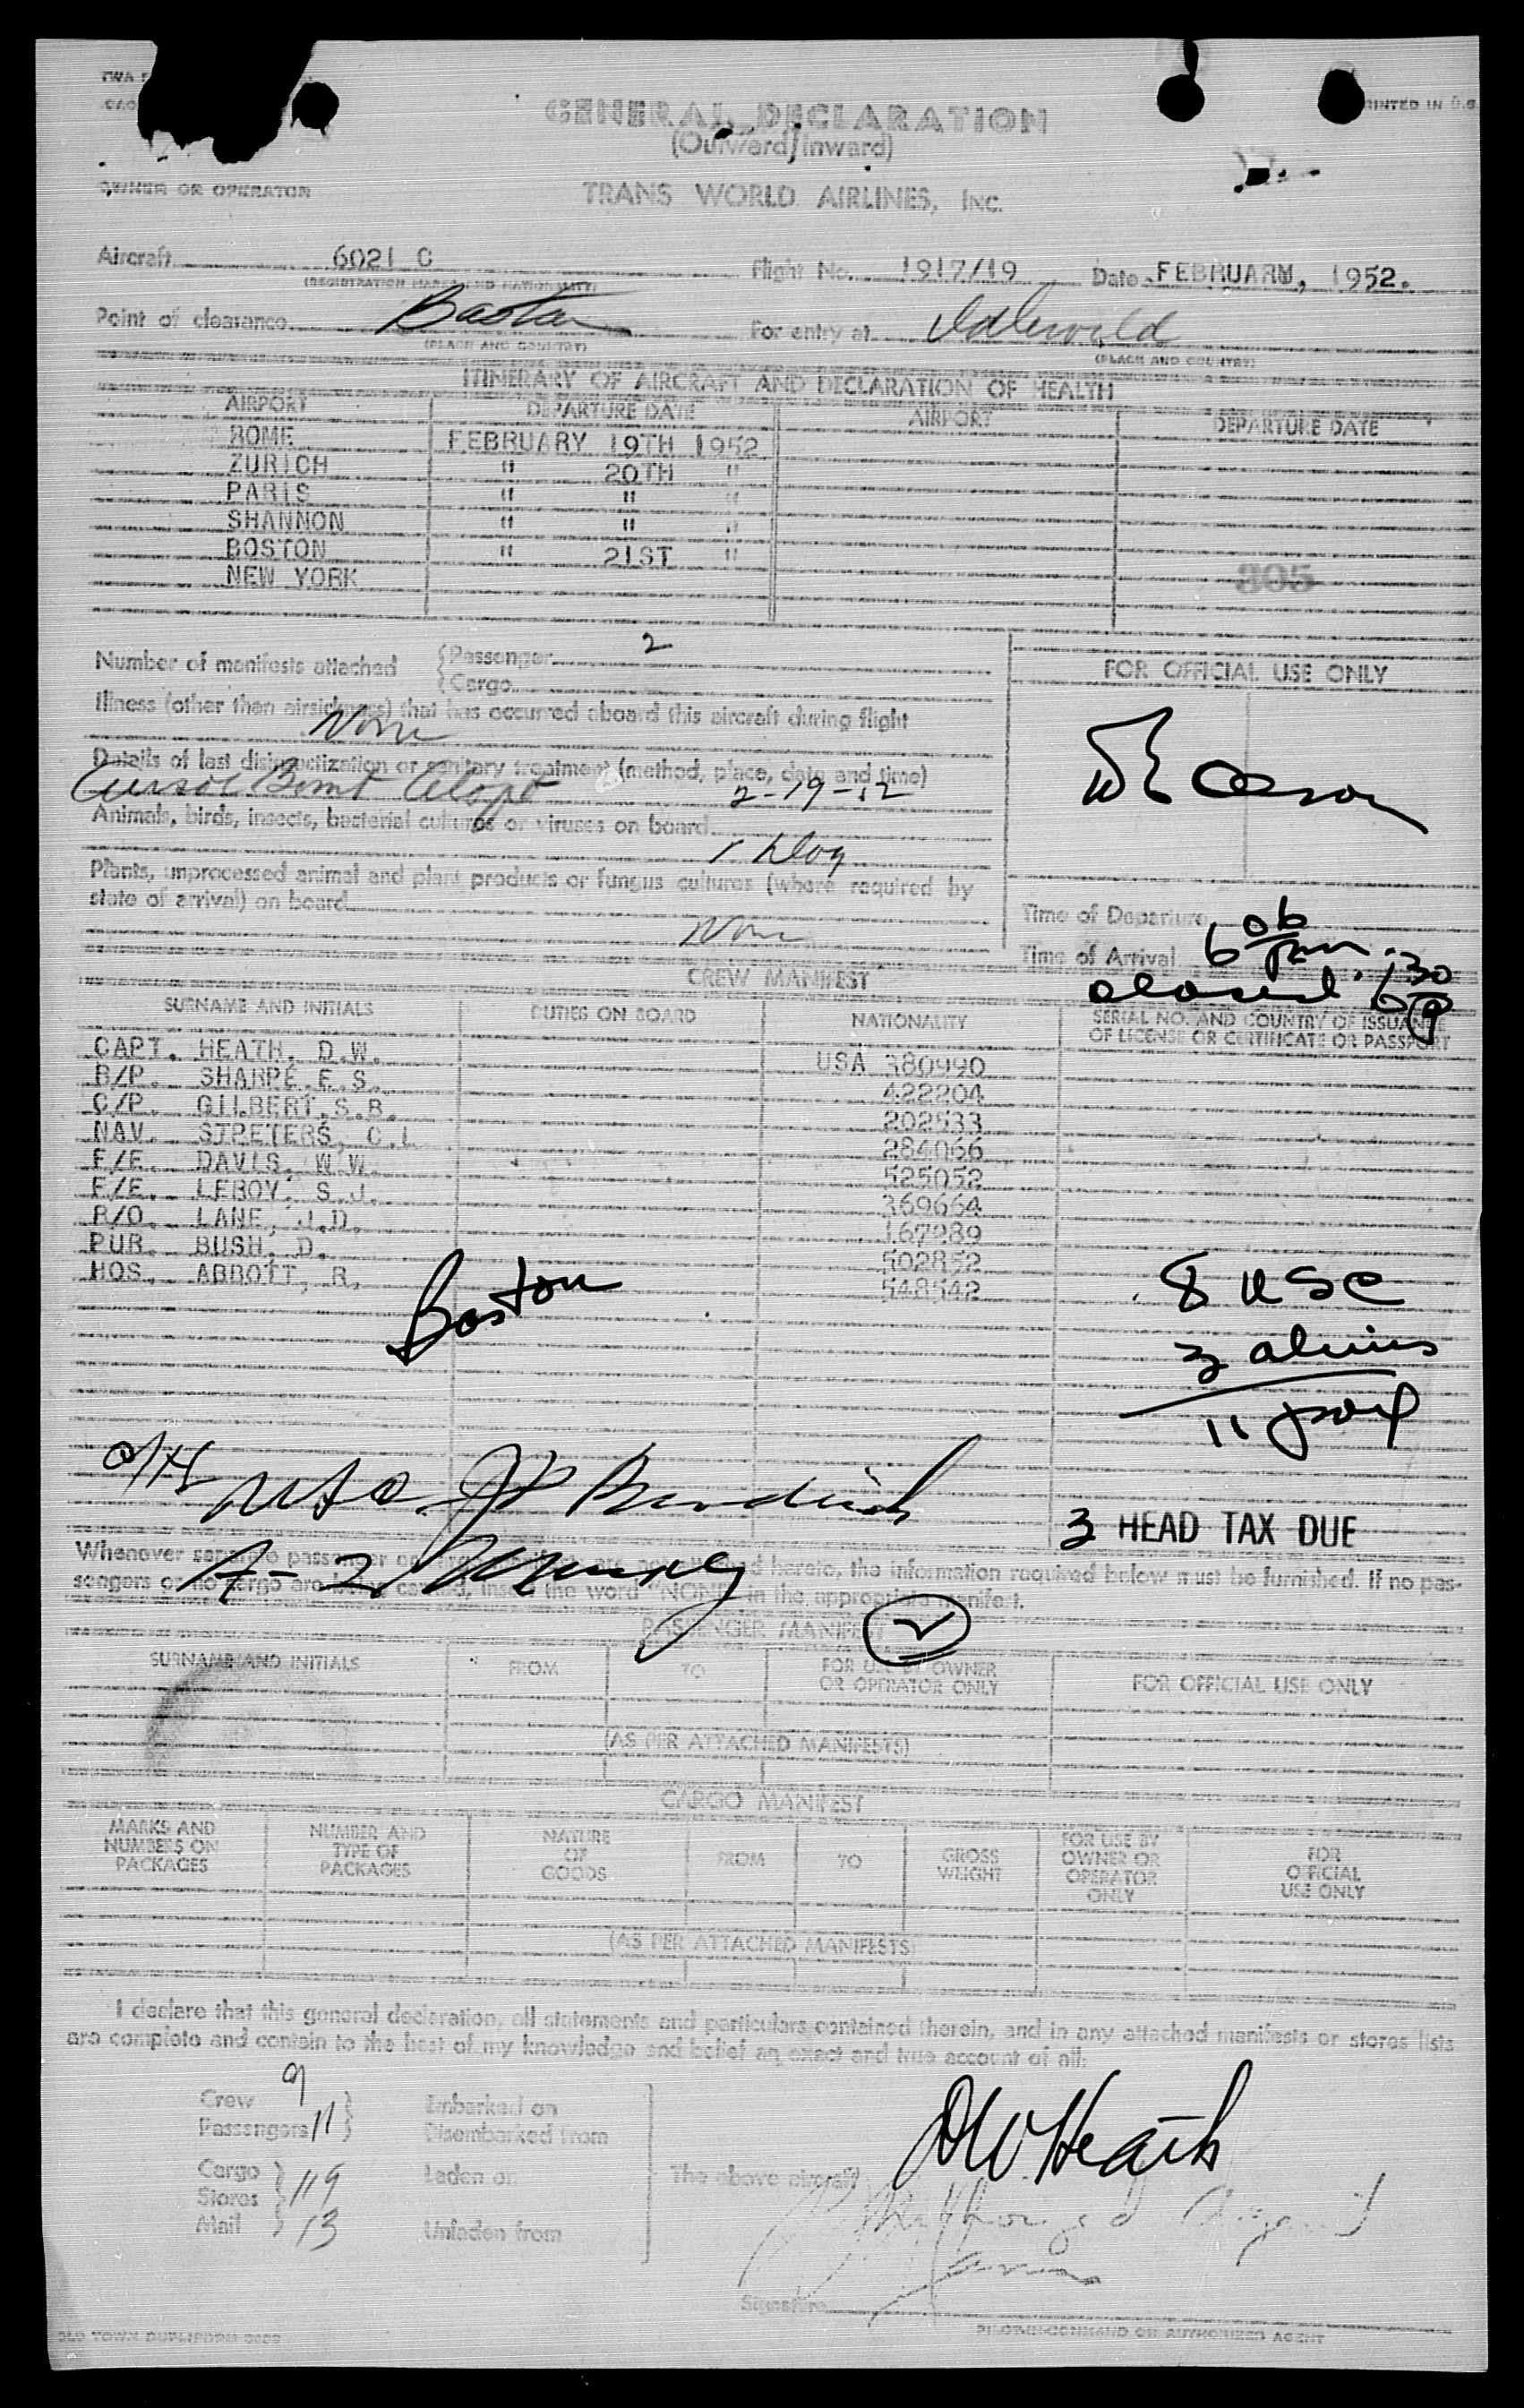 TWA
CAO
PRINTED IN U.S.
GENERAL DECLARATION
(Outward/Inward)
OWNER OR OPERATOR TRANS WORLD AIRLINES, INC.
Aircraft 6021 C Flight No. 1917/19 Date FEBRUARY, 1952.
(REGISTRATION MARKS AND NATIONALITY)
Point of clearance Boston For entry at Idlewild
(PLACE AND COUNTRY) (PLACE AND COUNTRY)
ITINERARY OF AIRCRAFT AND DECLARATION OF HEALTH
AIRPORT DEPARTURE DATE AIRPORT DEPARTURE DATE
ROME FEBRUARY 19TH 1952
ZURICH " 20TH "
PARIS " " "
SHANNON " " "
BOSTON " 21ST "
NEW YORK
305
Number of manifests attached {Passenger 2
{Cargo
FOR OFFICIAL USE ONLY
Illness (other than airsickness) that has occurred aboard this aircraft during flight
None
Details of last disinsectization or sanitary treatment (method, place, date and time)
Bomb 2-19-52
Animals, birds, insects, bacterial cultures or viruses on board
1 Dog
Plants, unprocessed animal and plant products or fungus cultures (where required by
state of arrival) on board
None
Time of Departure
Time of Arrival 6 06 pm
closed 6 30 p
CREW MANIFEST
SURNAME AND INITIALS DUTIES ON BOARD NATIONALITY SERIAL NO. AND COUNTRY OF ISSUANCE
OF LICENSE OR CERTIFICATE OR PASSPORT
CAPT. HEATH, D.W. USA 380990
B/P. SHARPE, E.S. 422204
C/P. GILBERT, S.B. 202533
NAV. STPETERS, C.L. 284066
F/E. DAVIS, W.W. 525052
F/E. LEROY, S.J. 369664
R/O. LANE, J.D. 167289
PUR. BUSH, D. 502852
HOS. ABBOTT, R. 548542
Boston
8 USC
3 aliens
11
3 HEAD TAX DUE
A-2
Whenever separate passenger or cargo manifests are not attached hereto, the information required below must be furnished. If no pas-
sengers or no cargo are being carried, insert the word "NONE" in the appropriate manifest.
PASSENGER MANIFEST
2
SURNAME AND INITIALS FROM TO FOR USE BY OWNER
OR OPERATOR ONLY FOR OFFICIAL USE ONLY
(AS PER ATTACHED MANIFESTS)
CARGO MANIFEST
MARKS AND
NUMBERS ON
PACKAGES
NUMBER AND
TYPE OF
PACKAGES
NATURE
OF
GOODS
FROM
TO
GROSS
WEIGHT
FOR USE BY
OWNER OR
OPERATOR
ONLY
FOR
OFFICIAL
USE ONLY
(AS PER ATTACHED MANIFESTS)
I declare that this general declaration, all statements and particulars contained therein, and in any attached manifests or stores lists
are complete and contain to the best of my knowledge and belief an exact and true account of all:
Crew 9 } Embarked on
Passengers 11 } Disembarked from
Cargo } 119 Laden on The above aircraft DW Heath
Stores
Mail } 13 Unladen from
Signature
PILOT-IN-COMMAND OR AUTHORIZED AGENT
OLD TOWN DUPLIFORM